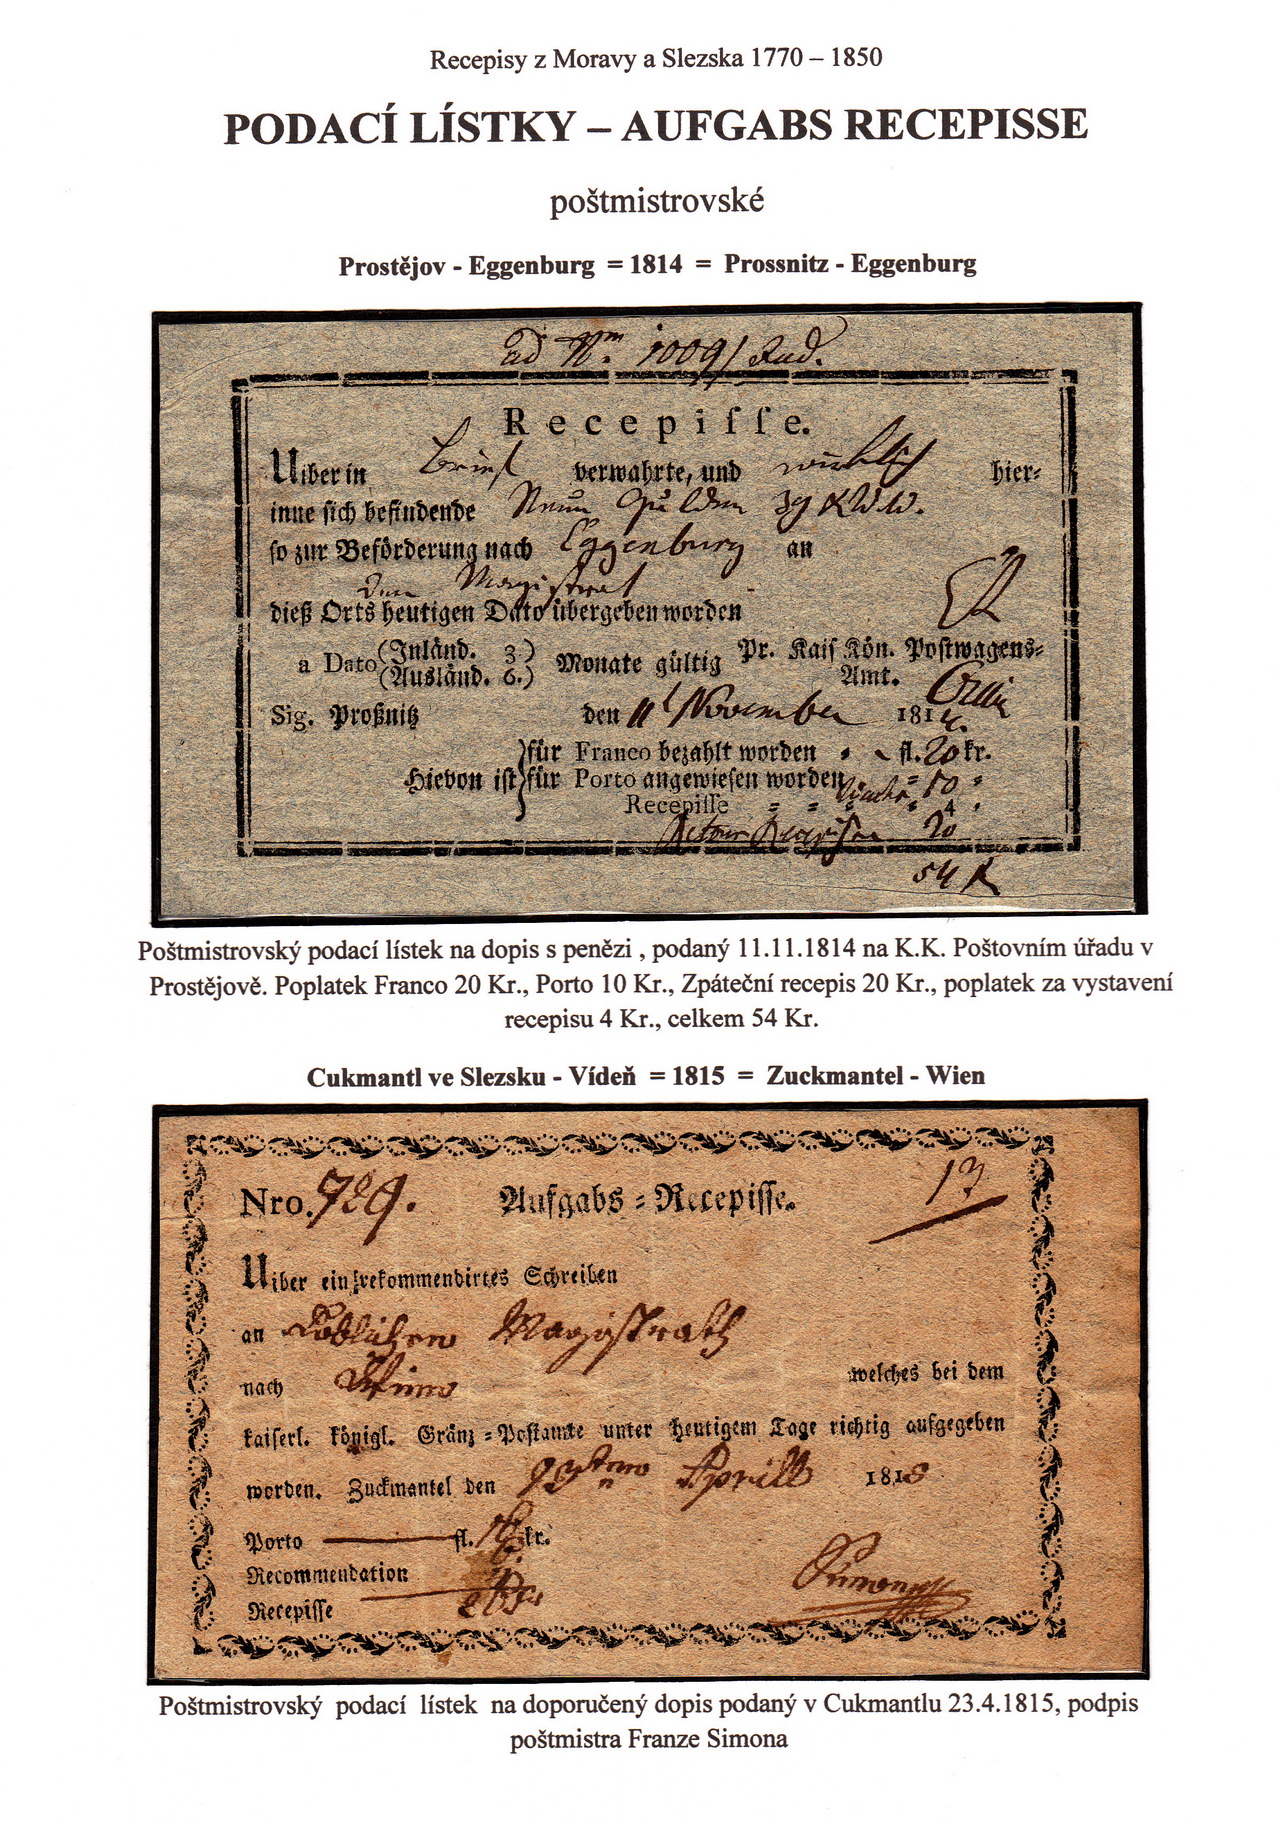 Recepisy z Moravy a Slezska 1770 – 1850
PODACÍ LÍSTKY – AUFGABS RECEPISSE
poštmistrovské
Prostějov - Eggenburg = 1814 = Prossnitz - Eggenburg
ad Nm. 1009/
Recepiſſe.
Uiber in Brief verwahrte, und wirklich hier-
inne ſich befindende Neun Gulden 39 x W.W.
ſo zur Beförderung nach Eggenburg an
den Magistrat
dieß Orts heutigen Dato übergeben worden
a Dato (Inländ. 3) Monate gültig Pr. Kaiſ Kön. Postwagens-
(Ausländ. 6.) Amt.
Sig. Proßnitz den 11t November 1814.
für Franco bezahlt worden fl. 20 kr.
Hievon ist für Porto angewieſen worden 10
Recepiſſe 4
Retour Recepisse 20
54 k
Poštmistrovský podací lístek na dopis s penězi , podaný 11.11.1814 na K.K. Poštovním úřadu v
Prostějově. Poplatek Franco 20 Kr., Porto 10 Kr., Zpáteční recepis 20 Kr., poplatek za vystavení
recepisu 4 Kr., celkem 54 Kr.
Cukmantl ve Slezsku - Vídeň = 1815 = Zuckmantel - Wien
Nro. 729. Aufgabs-Recepiſſe. 13
Uiber ein rekommendirtes Schreiben
an Löblichen Magistrath
nach Wien welches bei dem
kaiſerl. königl. Gränz-Postamte unter heutigem Tage richtig aufgegeben
worden. Zuckmantel den 23ten Aprill 1815
Porto fl. kr.
Recommendation
Recepiſſe
Poštmistrovský podací lístek na doporučený dopis podaný v Cukmantlu 23.4.1815, podpis
poštmistra Franze Simona